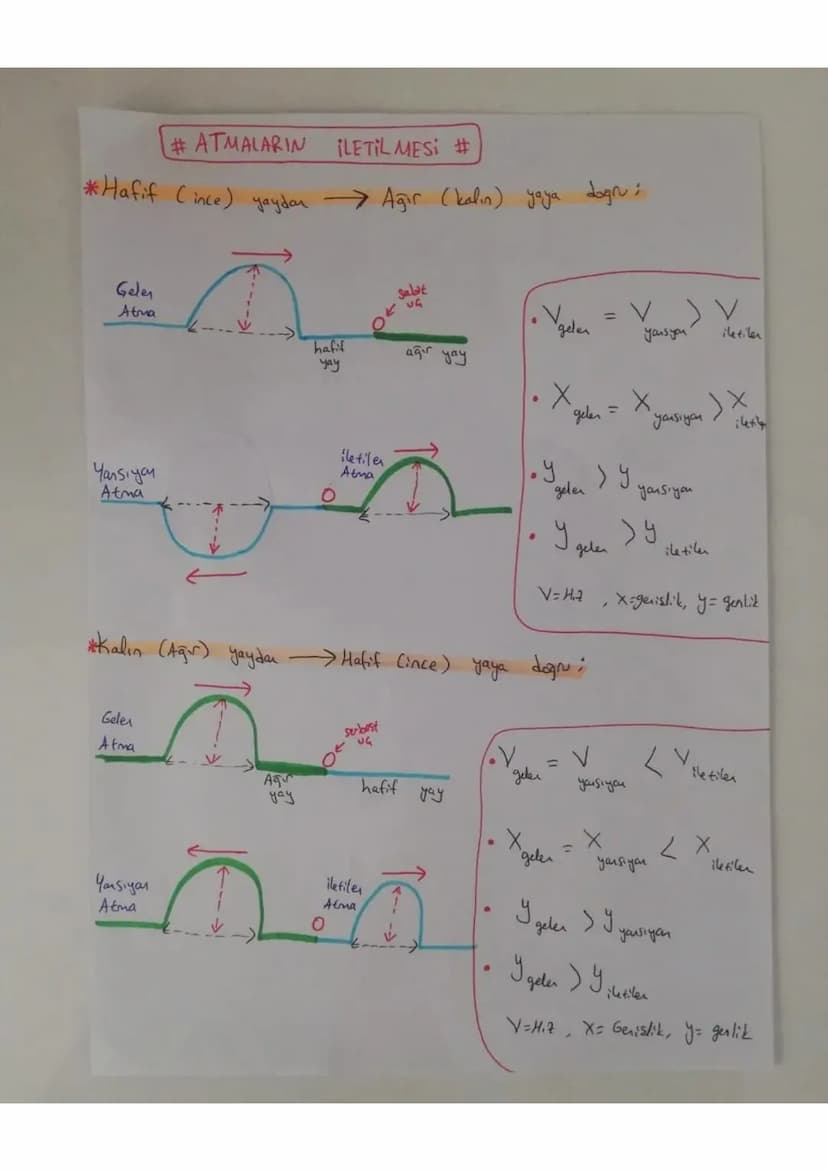 # ATMALARIN İLETİLMESİ #
*Hafif (ince) yaydan → Ağır (kalın) yaya doğru;
Gelen
Atma
sabit
uç
hafif
yay
ağır yay
• Vgelen = Vyansıyan > Viletilen
• Xgelen = Xyansıyan > Xiletilen
• ygelen > yyansıyan
• ygelen > yiletilen
V=Hız , X=genişlik, y= genlik
Yansıyan
Atma
iletilen
Atma
*Kalın (Ağır) yaydan → Hafif (ince) yaya doğru;
Gelen
Atma
serbest
uç
Ağır
yay
hafif yay
• Vgelen = Vyansıyan < Viletilen
• Xgelen = Xyansıyan < Xiletilen
• ygelen > yyansıyan
• ygelen > yiletilen
V=Hız , X= Genişlik, y= genlik
Yansıyan
Atma
iletilen
Atma